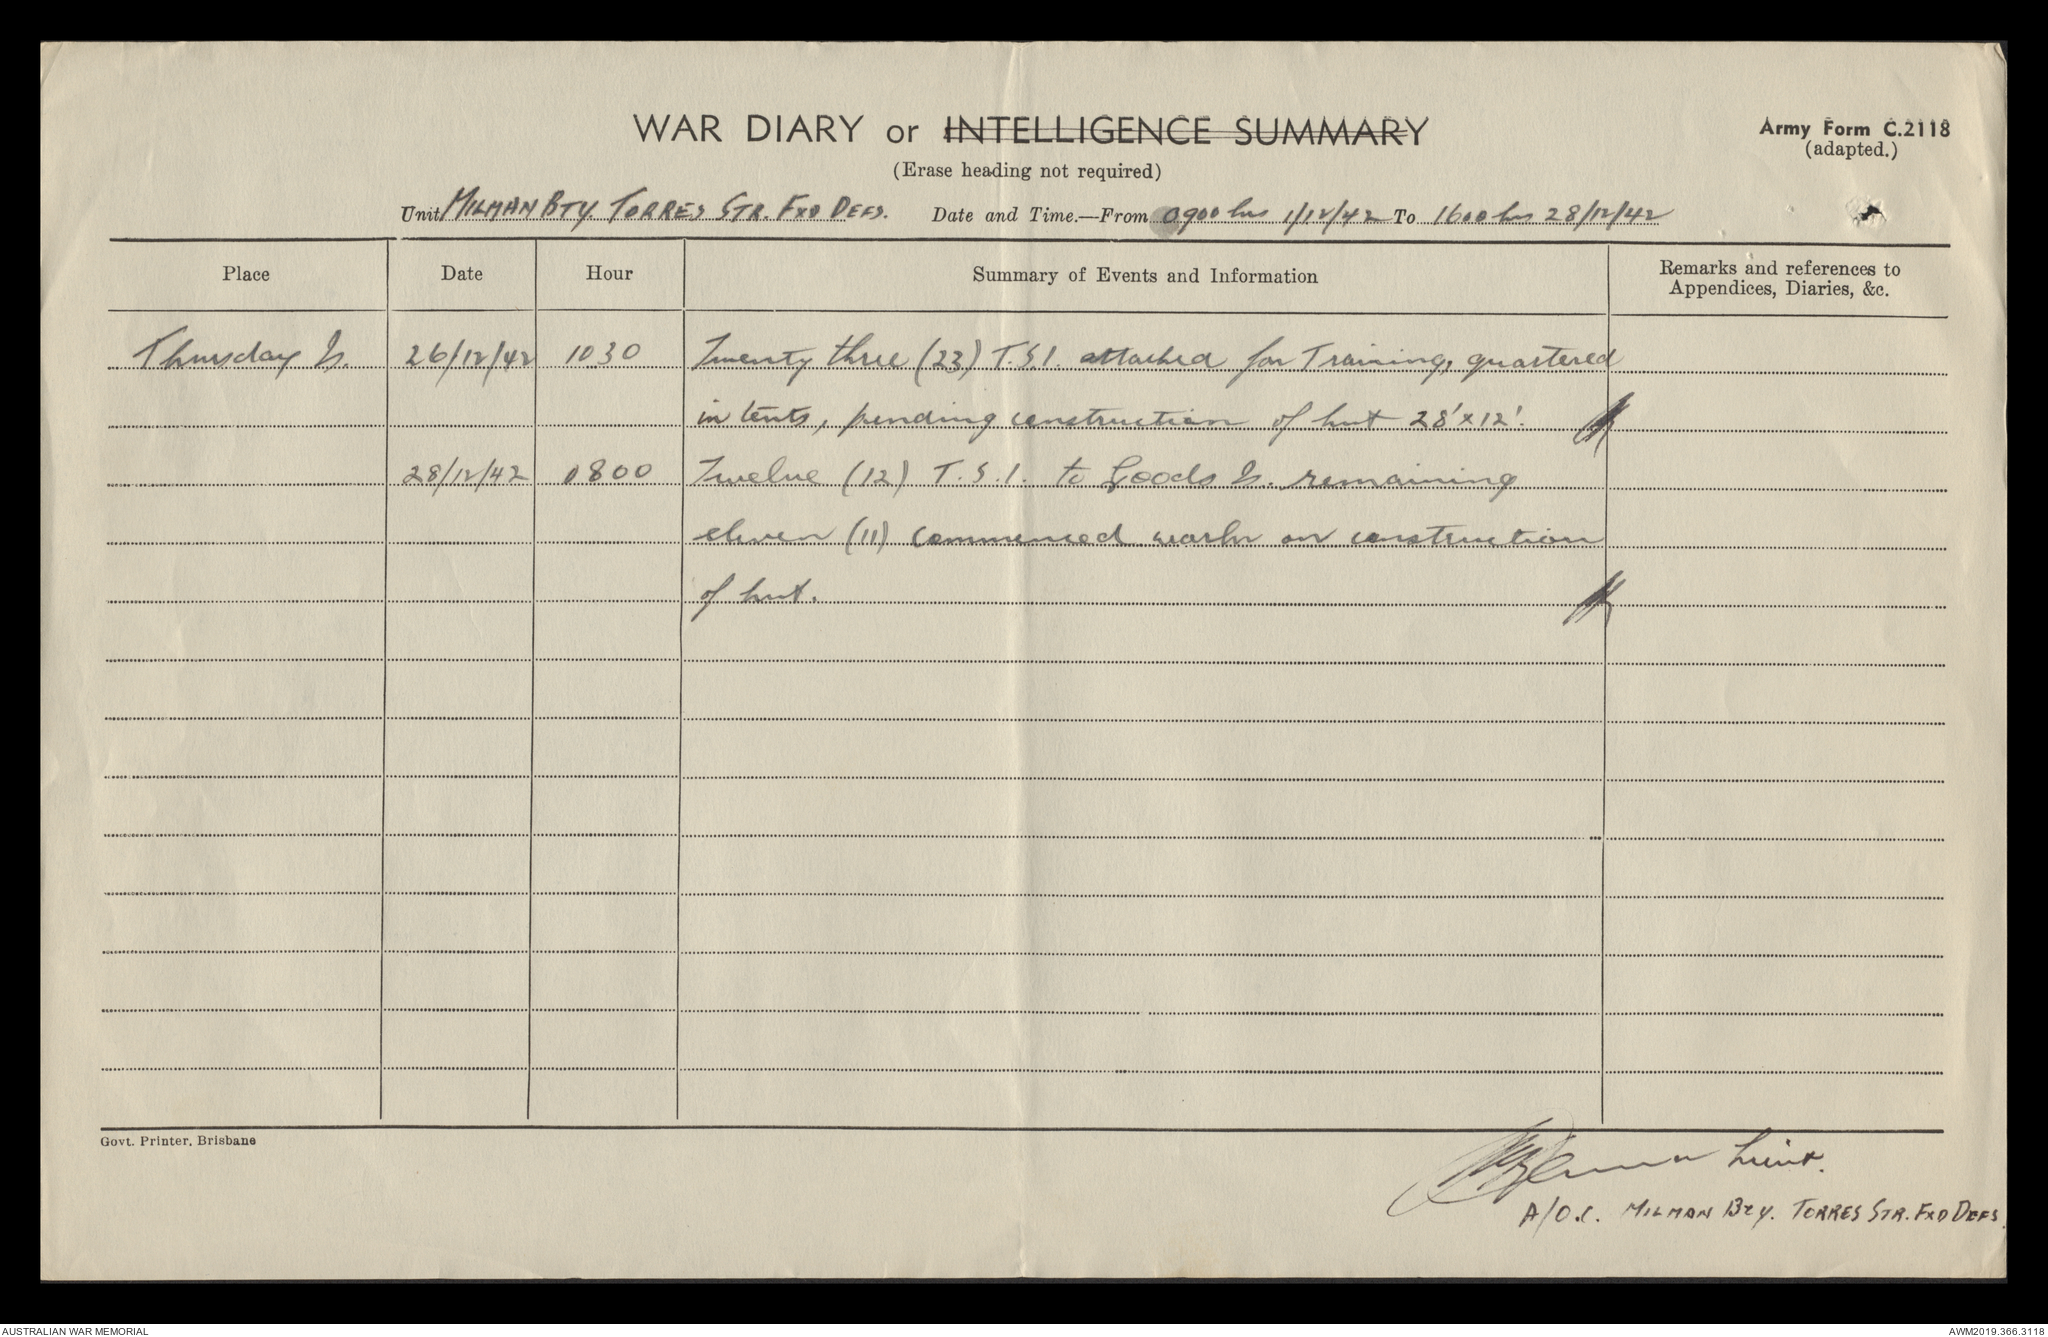 WAR DIARY or INTELLIGENCE SUMMARY
Army Form C.2118
(adapted.)
(Erase heading not required)
Unit MILMAN BTY. TORRES STR. FXD DEFS. Date and Time.—From 0900 hrs 1/12/42 To 1600 hrs 28/12/42
Place Date Hour Summary of Events and Information Remarks and references to
Appendices, Diaries, &c.
Thursday Is. 26/12/42 1030 Twenty three (23) T.S.I. attached for Training, quartered
in tents, pending construction of hut 28'x12'.
28/12/42 0800 Twelve (12) T.S.I. to Goods Is. remaining
eleven (11) commenced work on construction
of hut.
Govt. Printer, Brisbane
Lieut.
A/O.C. MILMAN Bty. TORRES STR. FXD DEFS.
AUSTRALIAN WAR MEMORIAL
AWM2019.366.3118